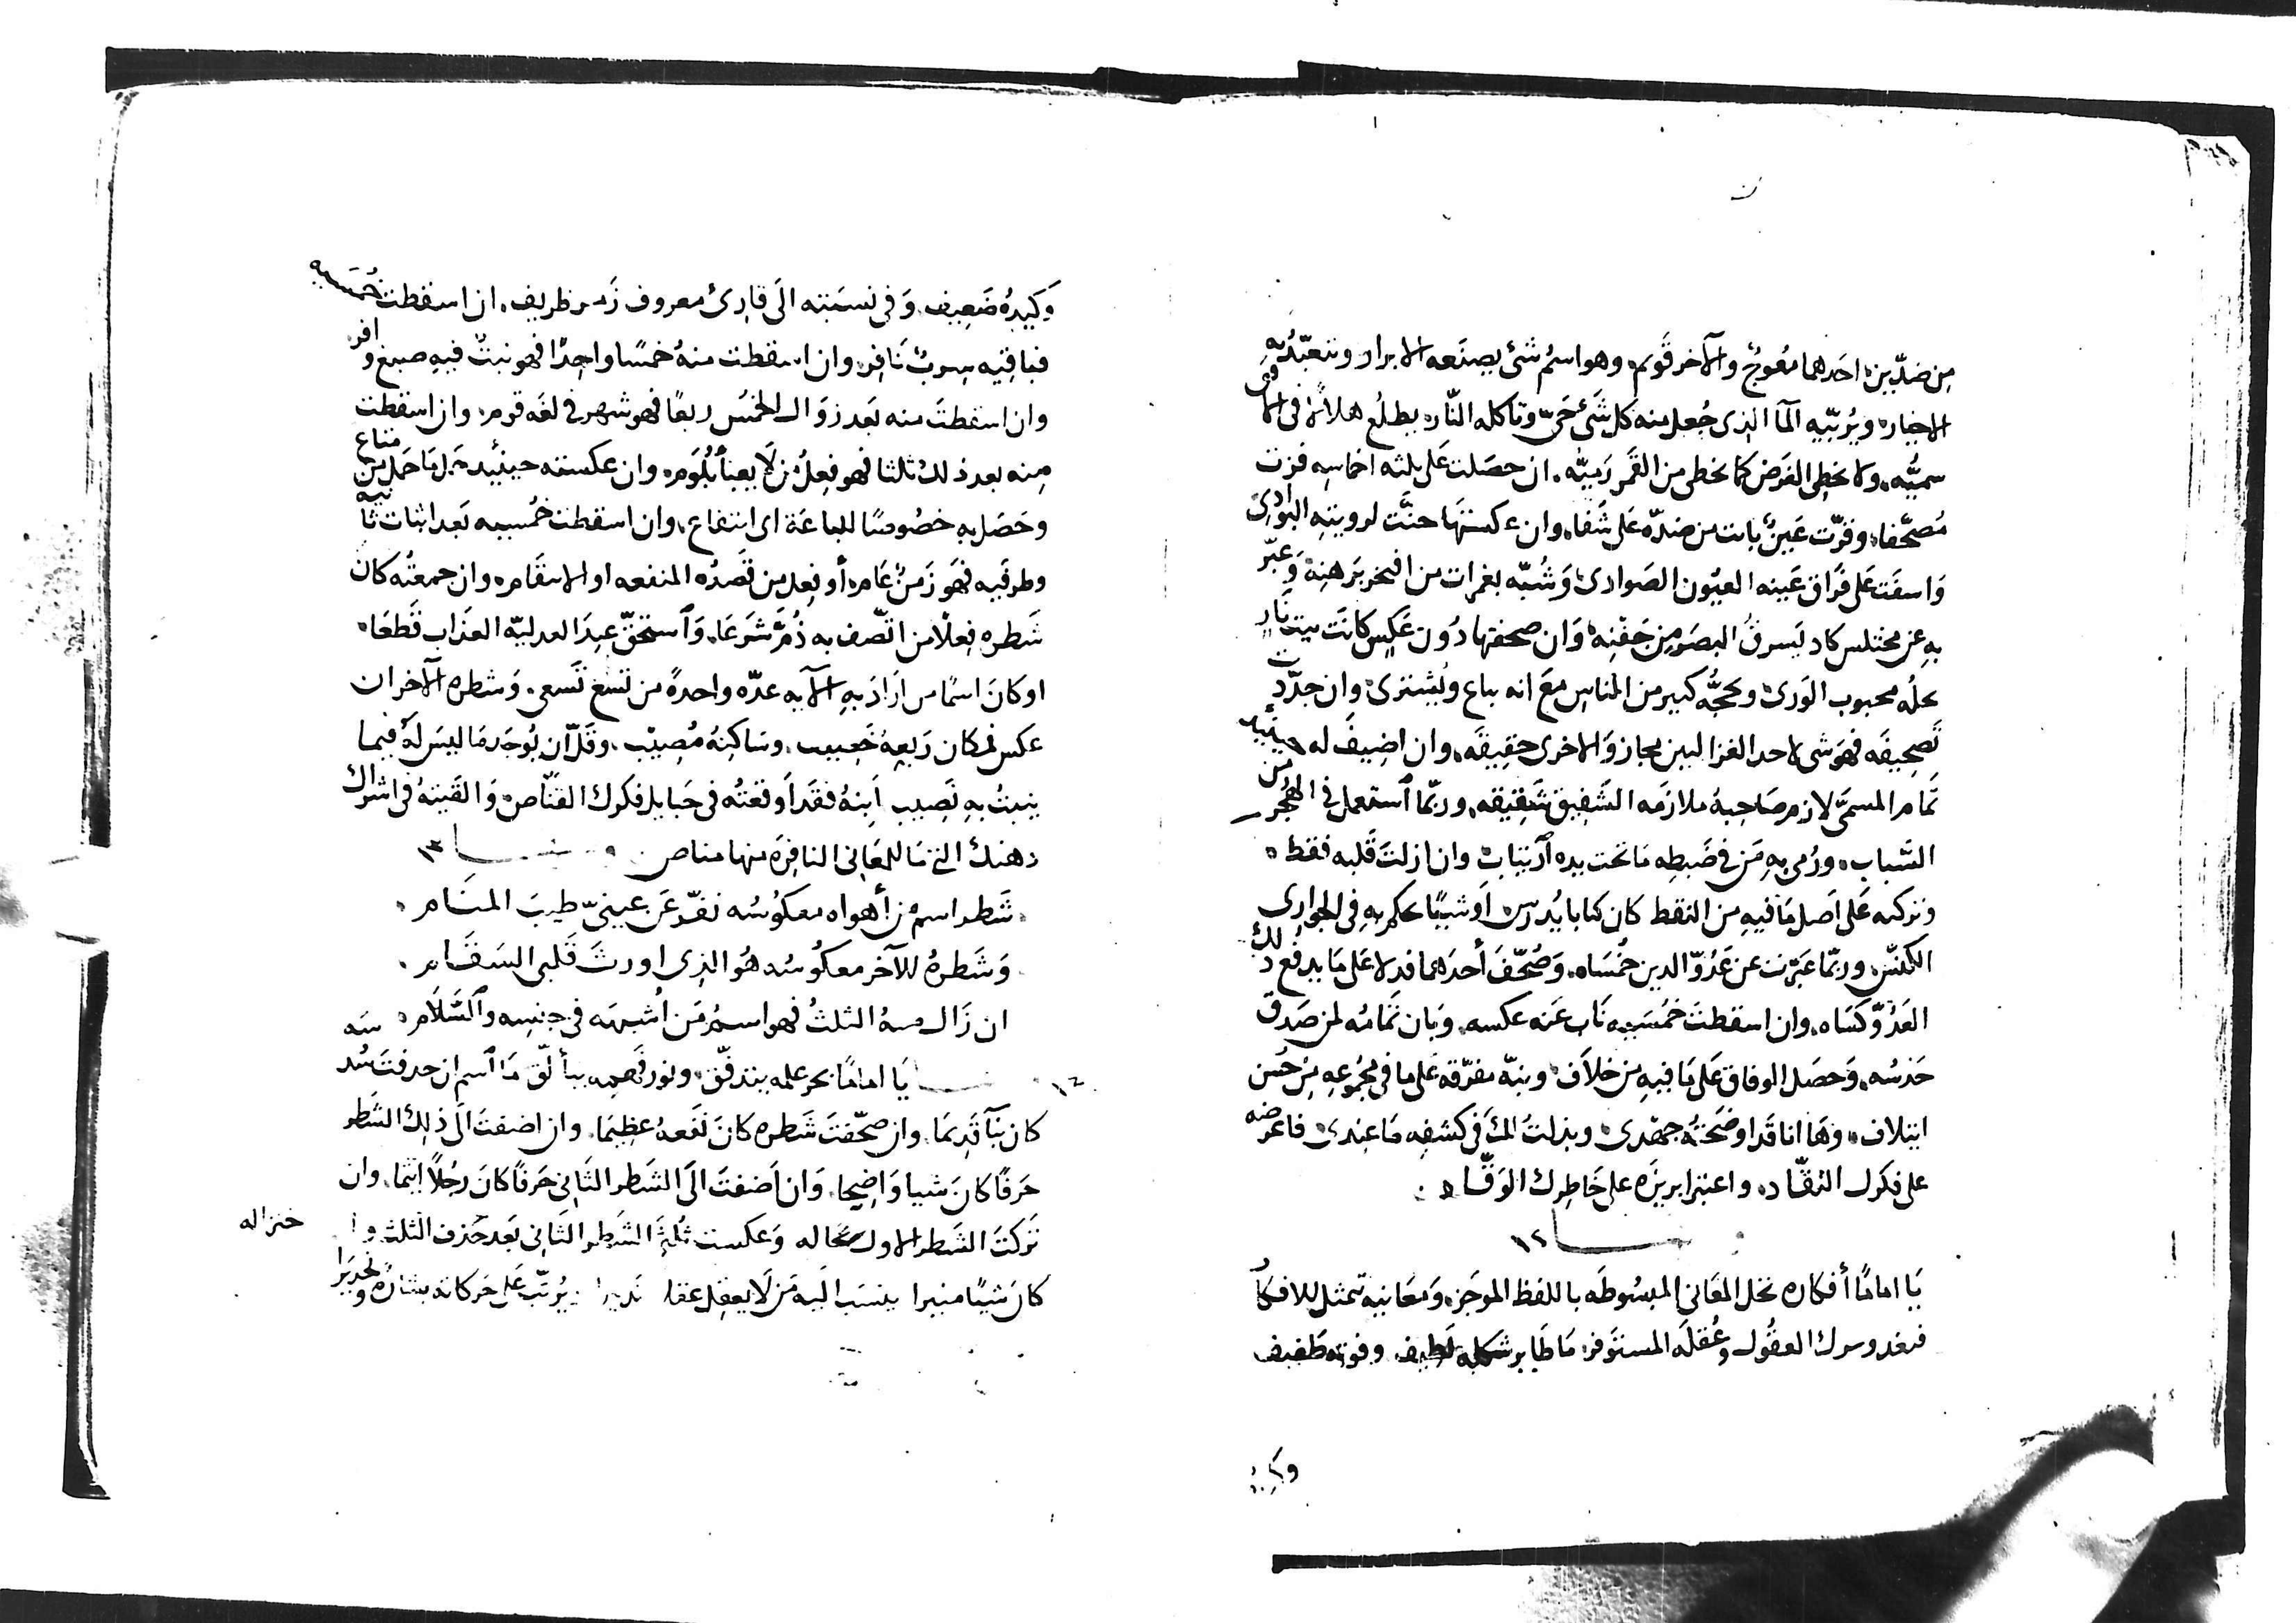 من ضدّين احدهما معوج والآخر قويم وهو اسم شئ يصنعه الابرار وتتعبّد به
الاخيار ويربّيه المآ الذى جُعل منه كل شئ حىّ وتاكله النّار يطلع هلالا فى
سميّه ولا يخطى الغرض كما يخطى من القمر رميّه ان حصلت على ثلثه اخماسه فزت
مصحّفا وقرّت عين باتت من ضدّه على شفا وان عكستها حنّت لرويته البوادى
واسفت على فراق عينه العيون الصوادى وشُبّه بغمرات من وعبّر
به عن مختلس كاد يسرق البصر من جفنه وان صحفتها دون عكس كانت بيت نار
محله محبوب الورى ويحجّه كبير من الناس مع انه يباع ويُشترى وان جدّدت
تصحيفه فهو شى لاحد الغزالين مجاز والاخرى حقيقه وان اضيف له حينئيذ
تمام المسمّى لازم صاحبه ملازمه الشفيق شقيقه وربّما استعمل فى الهجر من
السّباب ورُمى به من فى ضبطه ما تحت يده آرتياب وان ازلت قلبه فقط
وتركته على اصل ما فيه من النقط كان كتابا يُدرس او شيئًا حكم به فى الجوارى
الكنّس وربّما عبّرت عن عدُوّ الدين خُمُساه وصُحّف أحدهما فدلا على ما يدفع ذلك
العدُوّ كساه وان اسقطت خُمُسيه ناب عنه عكسه وبان تمامه لمن صدق
حدسُه وحصل الوفاق على ما فيه من خلاف ونبّه مفرّقه على ما فى مجموعه من حُسن
ايتلاف وها انا قد اوضحته جهدى وبذلت لك فى كشفه ما عندى فاعرضه
على فكرك النقّاد واعتبر ابريزه على خاطرك الوقّاد
١٢
يا اماما أفكاره نخل المعانى المبسوطه باللفظ الموجز ومعانيه تمثل للافكا
العقُول وعُقله المستوفز ما طاير شكله لطيف وفوته طفيف
وكيدُ
وكيدُه ضعيف وفى نسبته الى قارئ معروف زمر ظريف ان اسقطت خُمسيه
فباقيه سرب نافر وان اسقطت منهُ خمسًا واحدًا فهو نبتٌ فيه صبغ وافر
وان اسقطت منه بعد زوال الخمس ربعًا فهو شهر فى لغه قوم وان اسقطت
منه بعد ذلك ثلثا فهو فعلُ من لا يعبأ بلُوم وان عكسته حينئيذ حبل ما حمل من متاع
وحصل به خصُوصًا للباعة اى انتفاع وان اسقطت خُمسيه بعد اثبات ثانيه
وطرفيه فهو زمن عام أو فعل من قصدُه المنفعه او الانتقام وان جمعتُه كان
شطره فعلًا من اتّصف به ذُمّ شرعا وآستحقّ عند العدليّه العذاب قطعا
او كان اسمًا من اراد به الآيه عدّه واحدةً من تسع تسعى وشطره الآخر ان
عكس فمكان ربعه خصيب وساكنهُ مُصيب وقلّ ان يُوجد ما ليس له فيما
ينبتُ به نصيب أبنهُ فقد أوقعتُه فى حبايل فكرك القنّاص والقيتهُ فى اشراك
ذهنك التى ما للمعانى النافره منها مناص ١٣
شطر اسم من أهواه معكوسُه نفّر عن عينىّ طيب المنام
وشطرهُ للآخر معكوسُه هُو الذى اورث قلبى السقام
ان زال منهُ الثلثُ فهو اسمُ من اشبهه فى جنسه والسّلام
١٤ يا اماما بحر علمه يتدفّق ونور فهمه يتألّق ما آسم ان حذفت سُدسه
كان نبآ قديما وان صحّفت شطره كان نفعهُ عظيما وان اضفت الى ذلك الشطر
حرفًا كان شيا واضحا وان أضفت الى الشطر الثانى حرفًا كان رجُلا ايّما وان
تركت الشطر الاول بحاله وعكست ثُلثى الشطر الثانى بعد حذف الثلث
كان شيئًا منيرا ينسب اليه من لا يعقل عقلا يُرتّب على حركاته بشارة وتحذيرا